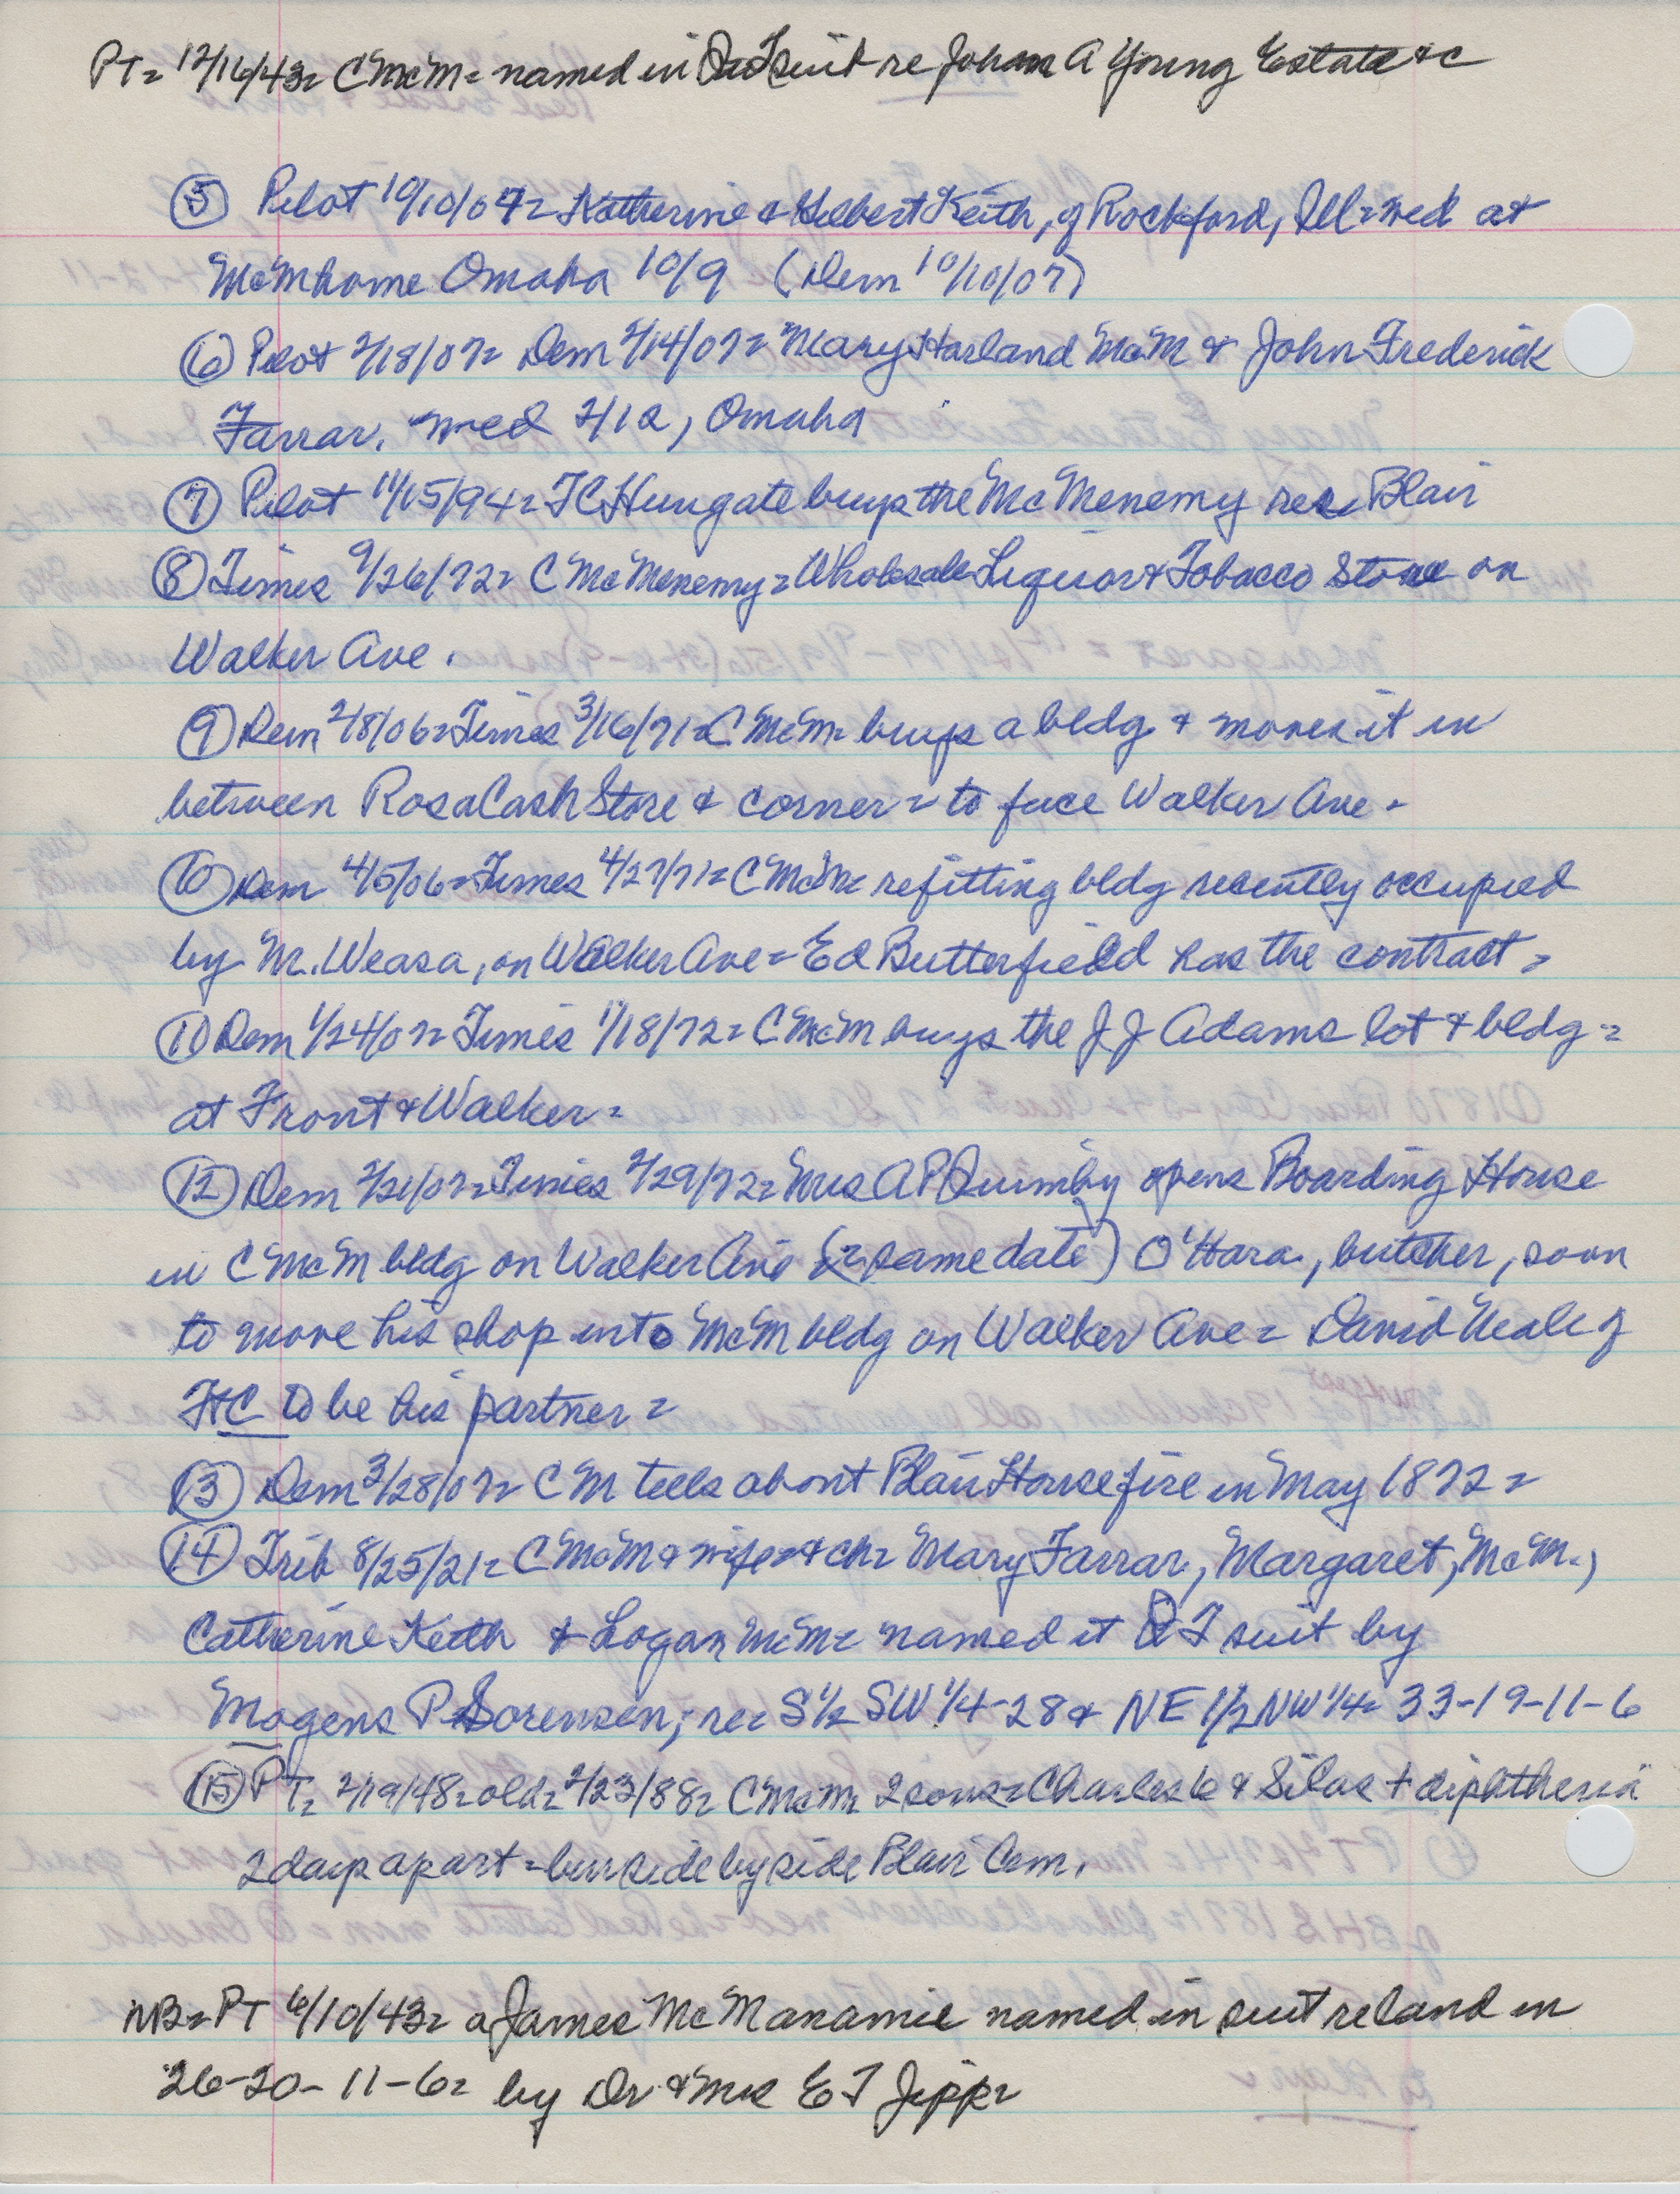 PT= 12/16/43= CMcM= named in QT suit re Johan A Young Estate &c
⑤ Pilot 10/10/07= Katherine & Hilbert Keith, of Rockford, Ill= med at
McM home Omaha 10/9 (Dem 10/10/07)
⑥ Pilot 2/18/07= Dem 2/14/07= Mary Harland McM & John Frederick
Farrar. med 2/12, Omaha
⑦ Pilot 11/15/94= TC Hungate buys the McMenemy res= Blair
⑧ Times 9/26/72= C McMenemy= Wholesale Liquor & Tobacco Store on
Walker Ave.
⑨ Dem 2/8/06= Times 3/16/71= C McM= buys a bldg & moves it in
between Rosa Cash Store & corner= to face Walker Ave.
⑩ Dem 4/5/06= Times 4/27/71= C McM= refitting bldg recently occupied
by M. Weasa, on Walker Ave= Ed Butterfield has the contract=
⑪ Dem 1/24/07= Times 1/18/72= C McM buys the J J Adams lot & bldg=
at Front & Walker=
⑫ Dem 2/21/07= Times 2/29/72= Mrs A P Quimby opens Boarding House
in C McM bldg on Walker Ave (= same date) O'Hara, butcher, soon
to move his shop into McM bldg on Walker Ave= David Neale of
FtC to be his partner=
⑬ Dem 3/28/07= CM tells about Blair House fire in May 1872=
⑭ Trib 8/25/21= C McM & wife= & ch= Mary Farrar, Margaret, McM.,
Catherine Keith & Logan McM= named it QT suit by
Mogens P Sorensen; re= S½ SW ¼-28 & NE 1/2 NW ¼= 33-19-11-6
⑮ PT= 2/19/48= old= 2/23/88= C McM= 2 sons= Charles 6 & Silas + diphtheria
2 days apart= bur side by side Blair Cem.
NB= PT 6/10/43= a James McManamie named in suit re land in
26-20-11-6= by Dr & Mrs E J Jipp=